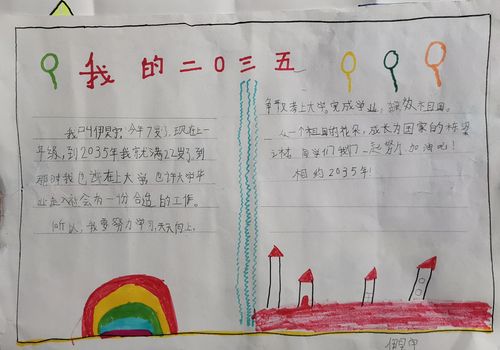 我的二〇三五
我叫伊昊宇,今年7岁了,现在上一
年级,到2035年我就满22岁了,到
那时我也许在上大学,也许大学毕
业走入社会有一份合适的工作。
所以,我要努力学习,天天向上,
争取考上大学,完成学业,报效祖国。
从一个祖国的花朵,成长为国家的栋梁
之材。同学们我们一起努力加油吧!
相约2035年!